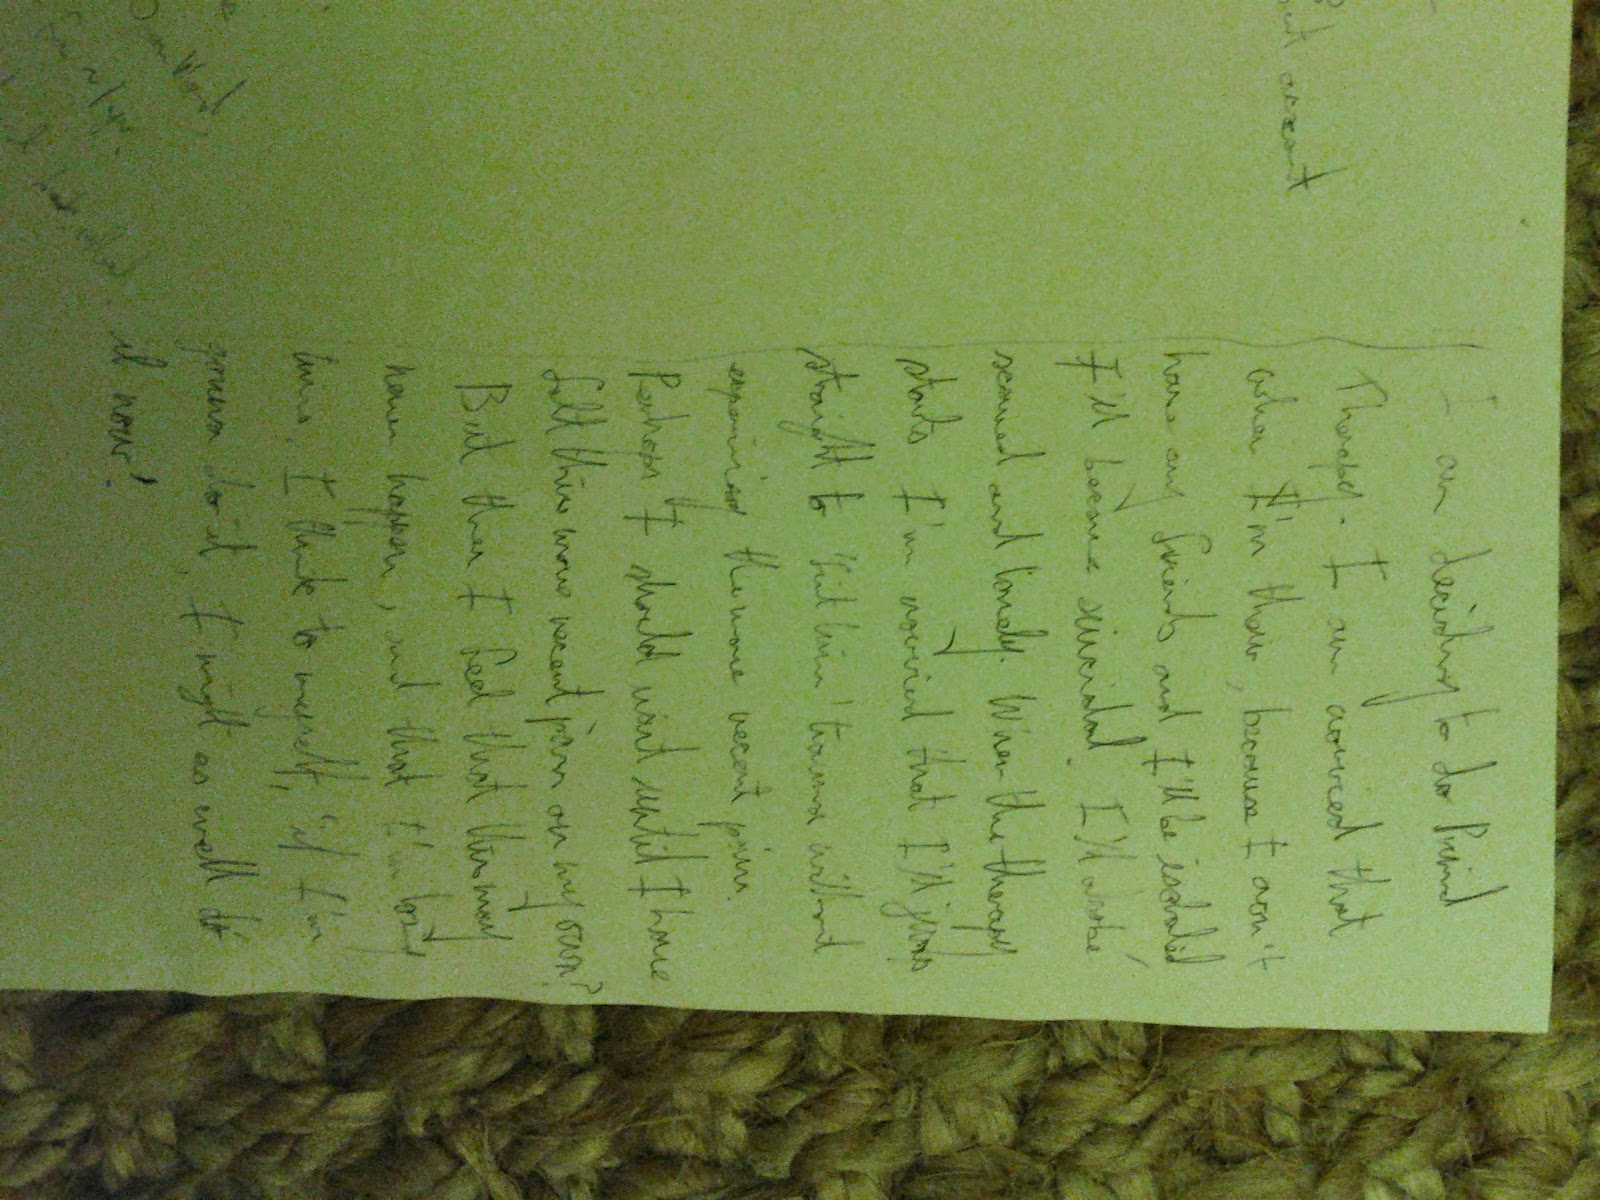 I am deciding to do Primal
Therapy. I am worried that
when I'm there, because I won't
have any friends and I'll be isolated
I'll become suicidal. I'll also be
scared and lonely. When the therapy
starts I'm worried that I'll jump
straight to trauma without
experiencing the more recent pain.
Perhaps I should wait until I have
felt this more recent pain on my own?
But then I feel that this may
never happen, and that I'm losing
time. I think to myself, "if I'm
gonna do it, I might as well do
it now!
accent
Own Word,